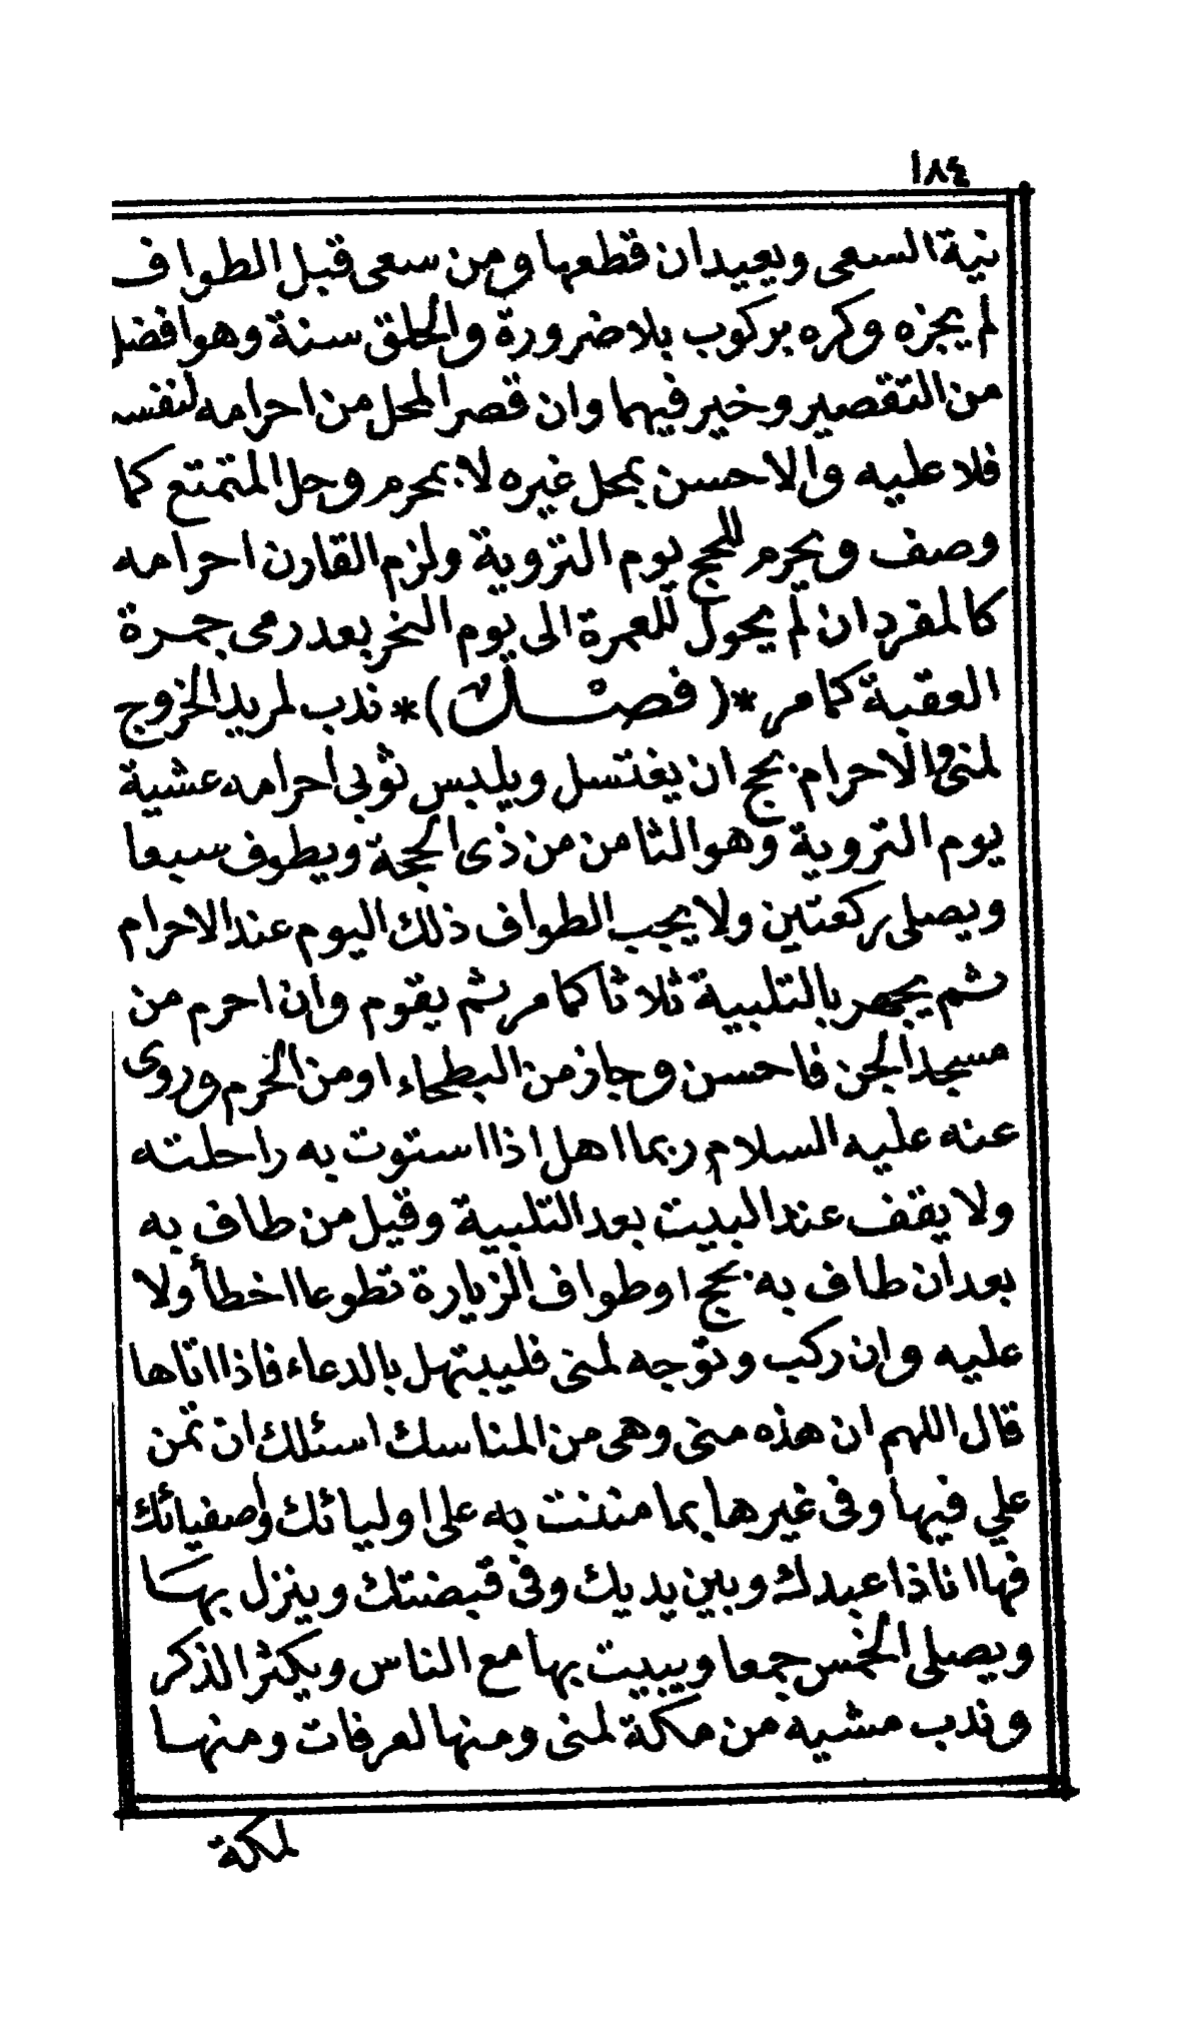 ١٨٤
نية السعى ويعيد ان قطعها ومن سعى قبل الطواف
لم يجزه وكره بركوب بلا ضرورة والحلق سنة وهو افضل
من التقصير وخير فيهما وان قصر المحل من احرامه لنفسه
فلا عليه والاحسن بمحل غيره لا بمحرم وحل المتمتع كما
وصف ويحرم للحج يوم التروية ولزم القارن احرامه
كالمفرد ان لم يحول للعمرة الى يوم النحر بعد رمى جمرة
العقبة كما مر *( فصل )* ندب لمريد الخروج
لمنى والاحرام بحج ان يغتسل ويلبس ثوبى احرامه عشية
يوم التروية وهو الثامن من ذى الحجة ويطوف سبعا
ويصلى ركعتين ولا يجب الطواف ذلك اليوم عند الاحرام
ثم يجهر بالتلبية ثلاثا كما مر ثم يقوم وان احرم من
مسجد الجن فاحسن وجاز من البطحاء او من الحرم وروى
عنه عليه السلام ربما اهل اذا استوت به راحلته
ولا يقف عند البيت بعد التلبية وقيل من طاف به
بعد ان طاف به بحج او طواف الزيارة تطوعا اخطأ ولا
عليه وان ركب وتوجه لمنى فليبتهل بالدعاء فاذا اتاها
قال اللهم ان هذه منى وهى من المناسك اسئلك ان تمن
علي فيها وفى غيرها بما مننت به على اوليائك وأصفيائك
فها انا ذا عبدك وبين يديك وفى قبضتك وينزل بها
ويصلى الخمس جمعا ويبيت بها مع الناس ويكثر الذكر
وندب مشيه من مكة لمنى ومنها لعرفات ومنها
لمكة